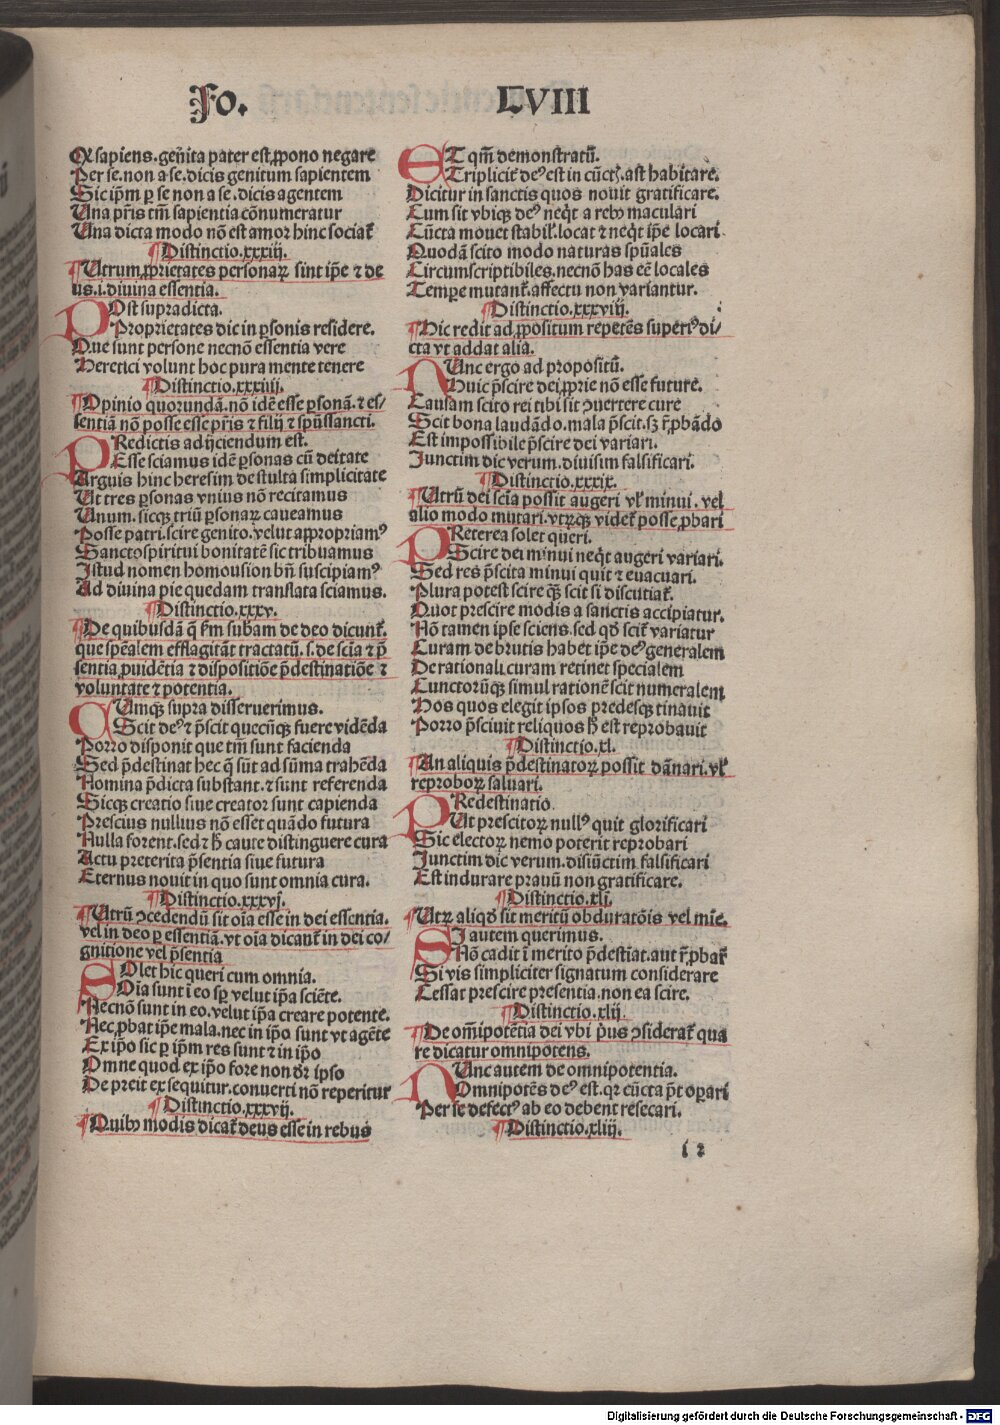 Fo. LVIII
Q sapiens.geñita pater est,ꝓpono negare
Per se.non a se.dicis genitum sapientem
Sic ip̄m ꝑ se non a se.dicis agentem
Una pr̄is tm̄ sapientia cōnumeratur
Una dicta modo nō est amor hinc sociat᷑
¶ Distinctio.xxxiij.
¶ Utrum ꝓprietates personaꝝ sint ip̄e ⁊ de
us.i.diuina essentia.
POst supradicta.
Proprietates dic in ꝑsonis residere.
Que sunt persone necnō essentia vere
Heretici volunt hoc pura mente tenere
¶ Distinctio.xxxiiij.
¶ Opinio quorundā.nō idē esse ꝑsonā.⁊ es/
sentiā nō posse esse pr̄is ⁊ filij ⁊ sp̄ussancti.
PRedictis adijciendum est.
Esse sciamus idē ꝑsonas cū deitate
Arguis hinc heresim de stulta simplicitate
Ut tres ꝑsonas vnius nō recitamus
Unum.sicqꝫ triū ꝑsonaꝝ caueamus
Posse patri.scire genito.velut appropriamꝰ
Sanctospiritui bonitatē sic tribuamus
Istud nomen homousion bn̄ suscipiamꝰ
Ad diuina pie quedam translata sciamus.
¶ Distinctio.xxxv.
¶ De quibusdā q̄ ẜm subam de deo dicunt᷑.
que spēalem efflagitāt tractatū.s.de scīa ⁊ p̄
sentia ꝓuidētia ⁊ dispositiōe p̄destinatiōe ⁊
voluntate ⁊ potentia.
CUmqꝫ supra disseruerimus.
Scit deꝰ ⁊ p̄scit quecūqꝫ fuere vidēda
Porro disponit que tm̄ sunt facienda
Sed p̄destinat hec q̄ sūt ad sūma trahēda
Nomina p̄dicta substant.⁊ sunt referenda
Sicqꝫ creatio siue creator sunt capienda
Prescius nullius nō esset quādo futura
Nulla forent.sed ⁊ h̄ caute distinguere cura
Actu preterita p̄sentia siue futura
Eternus nouit in quo sunt omnia cura.
¶ Distinctio.xxxvj.
¶ Utrū ↄcedendū sit oīa esse in dei essentia.
vel in deo ꝑ essentiā.vt oīa dicant᷑ in dei co/
gnitione vel p̄sentia
SOlet hic queri cum omnia.
Oīa sunt ī eo sꝑ velut ip̄a sciēte.
Necnō sunt in eo.velut ip̄a creare potente.
Nec ꝓbat ip̄e mala.nec in ip̄o sunt vt agēte
Ex ip̄o sic ꝑ ip̄m res sunt ⁊ in ip̄o
Omne quod ex ip̄o fore non dr̄ ipso
De preit ex sequitur.conuerti nō reperitur
¶ Distinctio.xxxvij.
¶ Quibꝫ modis dicat᷑ deus esse in rebus
ET qm̄ demonstratū.
Triplicit᷑ deꝰ est in cūct᷒.ast habitare.
Dicitur in sanctis quos nouit gratificare.
Cum sit vbiqꝫ deꝰ neq̇t a rebꝫ maculari
Cūcta mouet stabil᷒.locat ⁊ neq̇t ip̄e locari
Quodā scito modo naturas spūales
Circumscriptibiles.necnō has eē locales
Tempꝑe mutant᷑.affectu non variantur.
¶ Distinctio.xxxviij.
¶ Hic redit ad ꝓpositum repetēs superiꝰ di/
cta vt addat alia.
NUnc ergo ad propositū.
Huic p̄scire dei ꝓprie nō esse future.
Causam scito rei tibi sit ↄuertere cure
Scit bona laudādo.mala p̄scit.sꝫ r̄pbādo
Est impossibile p̄scire dei variari.
Iunctim dic verum.diuisim falsificari.
¶ Distinctio.xxxix.
¶ Utrū dei scīa possit augeri vl᷑ minui.vel
alio modo mutari.vtrūqꝫ videt᷑ posse ꝓbari
PReterea solet queri.
Scire dei minui neq̇t augeri variari.
Sed res p̄scita minui quit ⁊ euacuari.
Plura potest scire qꝫ scit si discutiat᷑.
Quot prescire modis a sanctis accipiatur.
Nō tamen ipse sciens.sed qď scit᷑ variatur
Curam de brutis habet ip̄e deꝰ generalem
De rationali.curam retinet specialem
Cunctorūqꝫ simul rationē scit numeralem
Hos quos elegit ipsos predesqꝫ tinauit
Porro p̄sciuit reliquos h̄ est reprobauit
¶ Distinctio.xl.
¶ An aliquis p̄destinatoꝝ possit dānari.vl᷑
reproboꝝ saluari.
PRedestinatio
Ut prescitoꝝ nullꝰ quit glorificari
Sic electoꝝ nemo poterit reprobari
Iunctim dic verum.disiūctim falsificari
Est indurare prauū non gratificare.
¶ Distinctio.xli.
¶ Utꝝ aliqď sit meritū obduratōis vel mīe.
SI autem querimus.
Nō cadit ī merito p̄destīat.aut r̄pbat᷑
Si vis simpliciter signatum considerare
Cessat prescire presentia.non ea scire.
¶ Distinctio.xlij.
¶ De om̄ipotētia dei vbi p̄us ↄsiderat᷑ qua
re dicatur omnipotens.
NUnc autem de omnipotentia.
Omnipotēs deꝰ est.qꝛ cūcta p̄t oꝑari
Per se defectꝰ ab eo debent resecari.
¶ Distinctio.xliij.
i 2
Digitalisierung gefördert durch die Deutsche Forschungsgemeinschaft - DFG